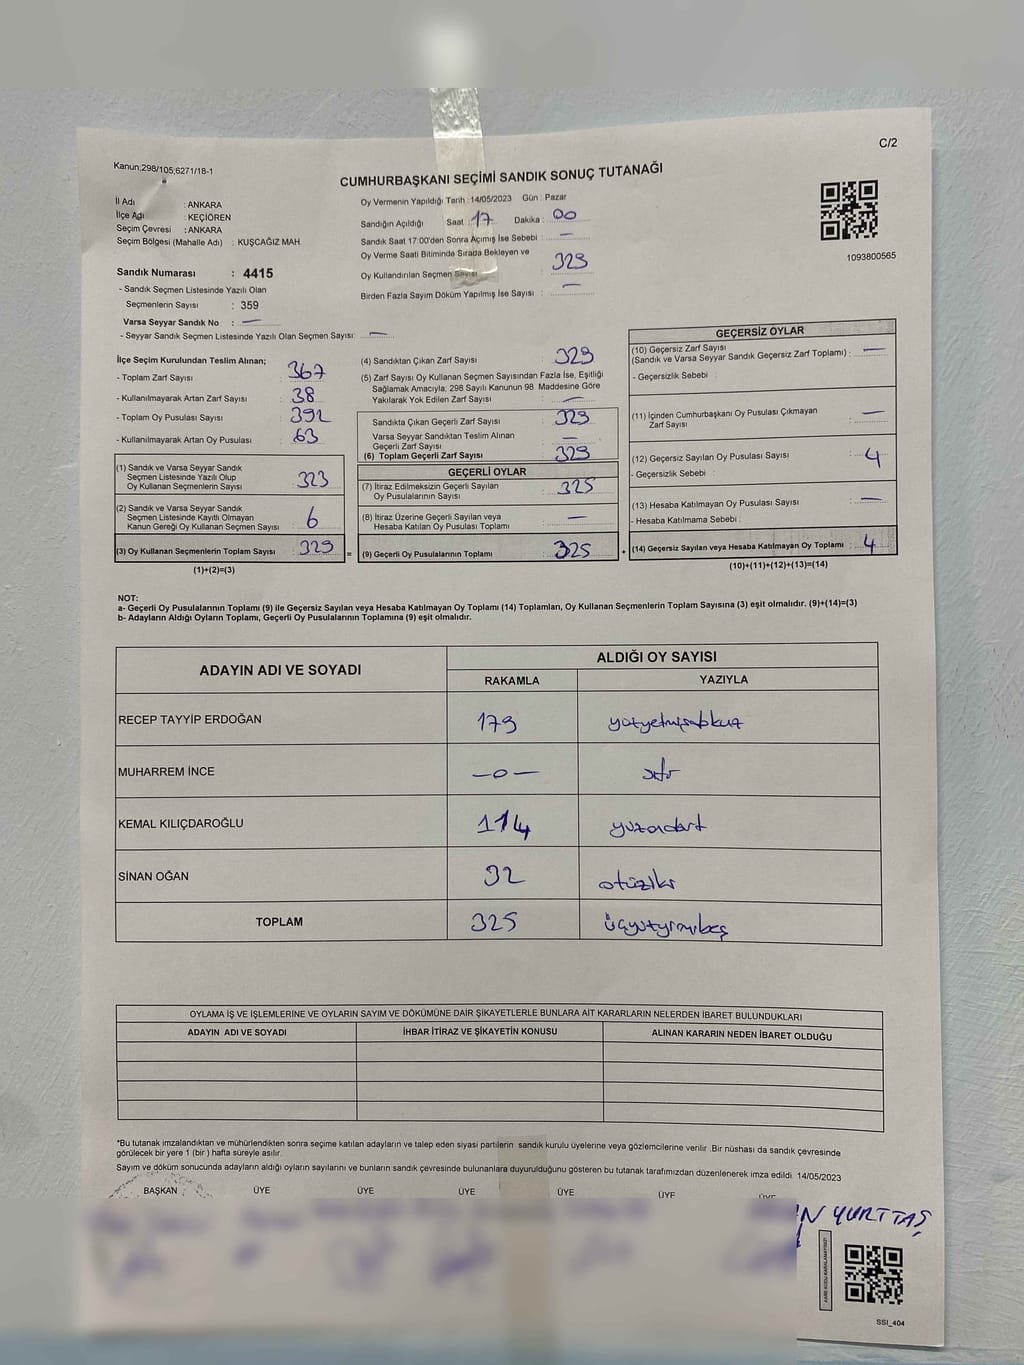 C/2
Kanun:298/105;6271/18-1
CUMHURBAŞKANI SEÇİMİ SANDIK SONUÇ TUTANAĞI
İl Adı : ANKARA
İlçe Adı : KEÇİÖREN
Seçim Çevresi : ANKARA
Seçim Bölgesi (Mahalle Adı) : KUŞCAĞIZ MAH.
Oy Vermenin Yapıldığı Tarih : 14/05/2023 Gün : Pazar
Sandığın Açıldığı Saat : 17 Dakika : 00
Sandık Saat 17:00'den Sonra Açımış İse Sebebi : —
Oy Verme Saati Bitiminde Sırada Bekleyen ve
Oy Kullandırılan Seçmen Sayısı : 329
Birden Fazla Sayım Döküm Yapılmış İse Sayısı : —
1093800565
Sandık Numarası : 4415
- Sandık Seçmen Listesinde Yazılı Olan
Seçmenlerin Sayısı : 359
Varsa Seyyar Sandık No : —
- Seyyar Sandık Seçmen Listesinde Yazılı Olan Seçmen Sayısı: —
İlçe Seçim Kurulundan Teslim Alınan;
- Toplam Zarf Sayısı : 367
- Kullanılmayarak Artan Zarf Sayısı : 38
- Toplam Oy Pusulası Sayısı : 392
- Kullanılmayarak Artan Oy Pusulası : 63
(1) Sandık ve Varsa Seyyar Sandık
Seçmen Listesinde Yazılı Olup
Oy Kullanan Seçmenlerin Sayısı : 323
(2) Sandık ve Varsa Seyyar Sandık
Seçmen Listesinde Kayıtlı Olmayan
Kanun Gereği Oy Kullanan Seçmen Sayısı : 6
(3) Oy Kullanan Seçmenlerin Toplam Sayısı : 329 =
(1)+(2)=(3)
(4) Sandıktan Çıkan Zarf Sayısı : 329
(5) Zarf Sayısı Oy Kullanan Seçmen Sayısından Fazla İse, Eşitliği
Sağlamak Amacıyla; 298 Sayılı Kanunun 98. Maddesine Göre
Yakılarak Yok Edilen Zarf Sayısı : —
Sandıkta Çıkan Geçerli Zarf Sayısı : 329
Varsa Seyyar Sandıktan Teslim Alınan
Geçerli Zarf Sayısı : —
(6) Toplam Geçerli Zarf Sayısı : 329
GEÇERLİ OYLAR
(7) İtiraz Edilmeksizin Geçerli Sayılan
Oy Pusulalarının Sayısı : 325
(8) İtiraz Üzerine Geçerli Sayılan veya
Hesaba Katılan Oy Pusulası Toplamı : —
(9) Geçerli Oy Pusulalarının Toplamı : 325 +
GEÇERSİZ OYLAR
(10) Geçersiz Zarf Sayısı
(Sandık ve Varsa Seyyar Sandık Geçersiz Zarf Toplamı) : —
- Geçersizlik Sebebi :
(11) İçinden Cumhurbaşkanı Oy Pusulası Çıkmayan
Zarf Sayısı : —
(12) Geçersiz Sayılan Oy Pusulası Sayısı : 4
- Geçersizlik Sebebi :
(13) Hesaba Katılmayan Oy Pusulası Sayısı : —
- Hesaba Katılmama Sebebi :
(14) Geçersiz Sayılan veya Hesaba Katılmayan Oy Toplamı : 4
(10)+(11)+(12)+(13)=(14)
NOT:
a- Geçerli Oy Pusulalarının Toplamı (9) ile Geçersiz Sayılan veya Hesaba Katılmayan Oy Toplamı (14) Toplamları, Oy Kullanan Seçmenlerin Toplam Sayısına (3) eşit olmalıdır. (9)+(14)=(3)
b- Adayların Aldığı Oyların Toplamı, Geçerli Oy Pusulalarının Toplamına (9) eşit olmalıdır.
ADAYIN ADI VE SOYADI ALDIĞI OY SAYISI
RAKAMLA YAZIYLA
RECEP TAYYİP ERDOĞAN 179 yüzyetmişdokuz
MUHARREM İNCE —0— sıfır
KEMAL KILIÇDAROĞLU 114 yüzondört
SİNAN OĞAN 32 otuziki
TOPLAM 325 üçyüzyirmibeş
OYLAMA İŞ VE İŞLEMLERİNE VE OYLARIN SAYIM VE DÖKÜMÜNE DAİR ŞİKAYETLERLE BUNLARA AİT KARARLARIN NELERDEN İBARET BULUNDUKLARI
ADAYIN ADI VE SOYADI İHBAR İTİRAZ VE ŞİKAYETİN KONUSU ALINAN KARARIN NEDEN İBARET OLDUĞU
*Bu tutanak imzalandıktan ve mühürlendikten sonra seçime katılan adayların ve talep eden siyasi partilerin sandık kurulu üyelerine veya gözlemcilerine verilir. Bir nüshası da sandık çevresinde
görülecek bir yere 1 (bir) hafta süreyle asılır.
Sayım ve döküm sonucunda adayların aldığı oyların sayılarını ve bunların sandık çevresinde bulunanlara duyurulduğunu gösteren bu tutanak tarafımızdan düzenlenerek imza edildi. 14/05/2023
BAŞKAN ÜYE ÜYE ÜYE ÜYE ÜYE ÜYE
N YURTTAŞ
SSI_404